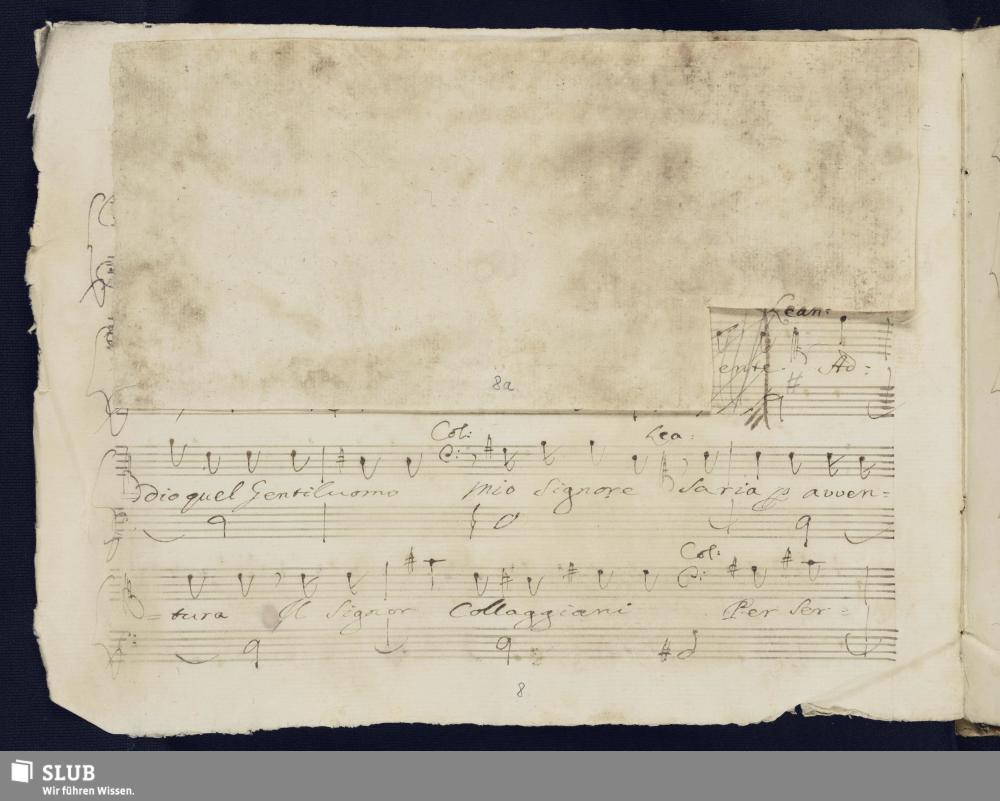 Lean:
ente. Ad=
8a
Col: Lea:
ddio quel Gentiluomo Mio Signore Saria p avven=
Col:
=tura Il Signor Collaggiani Per Ser=
8
SLUB
Wir führen Wissen.